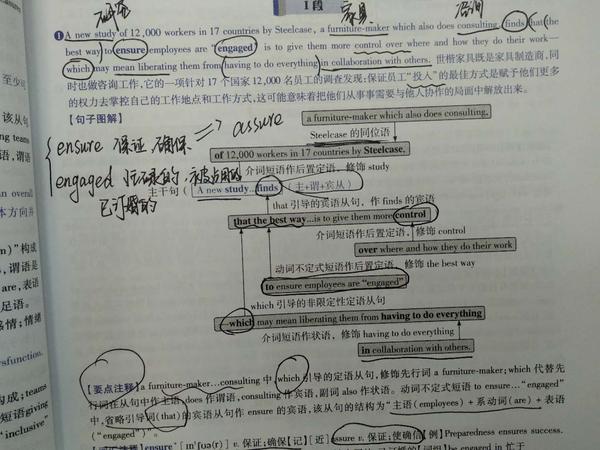 研究
I 段
家具
咨询
❶A new study of 12,000 workers in 17 countries by Steelcase, a furniture-maker which also does consulting, finds that the
best way to ensure employees are “engaged” is to give them more control over where and how they do their work—
which may mean liberating them from having to do everything in collaboration with others. 世楷家具既是家具制造商,同
时也做咨询工作,它的一项针对 17 个国家 12,000 名员工的调查发现:保证员工“投入”的最佳方式是赋予他们更多
的权力去掌控自己的工作地点和工作方式,这可能意味着把他们从事事需要与他人协作的局面中解放出来。
【句子图解】
ensure 保证、确保 => assure
engaged 忙碌的、被占用的
已订婚的
a furniture-maker which also does consulting,
Steelcase 的同位语
of 12,000 workers in 17 countries by Steelcase,
介词短语作后置定语,修饰 study
主干句 (A new study…finds (主+谓+宾从)
that 引导的宾语从句,作 finds 的宾语
that the best way…is to give them more control
介词短语作后置定语,修饰 control
over where and how they do their work
动词不定式短语作后置定语,修饰 the best way
to ensure employees are “engaged”
which 引导的非限定性定语从句
—which may mean liberating them from having to do everything
介词短语作状语,修饰 having to do everything
in collaboration with others.
【要点注释】a furniture-maker…consulting 中,which 引导的定语从句,修饰先行词 a furniture-maker;which 代替先
行词在从句中作主语 does 作谓语,consulting 作宾语,副词 also 作状语。动词不定式短语 to ensure…“engaged”
中,省略引导词(that)的宾语从句作 ensure 的宾语,该从句的结构为“主语(employees)+系动词(are)+表语
(“engaged”)”。
ensure* [ɪnˈʃʊə(r)] v. 保证;确保【记】【近】assure v. 保证;使确信【例】Preparedness ensures success.
be engaged in 忙于
至少可
该从句
ng teams
语,谓语
an overall
本方向并
)”构成
,谓语是
are,表语
足语。
感情;情绪
ysfunction.
构成;teams
短语giving
“inclusive”